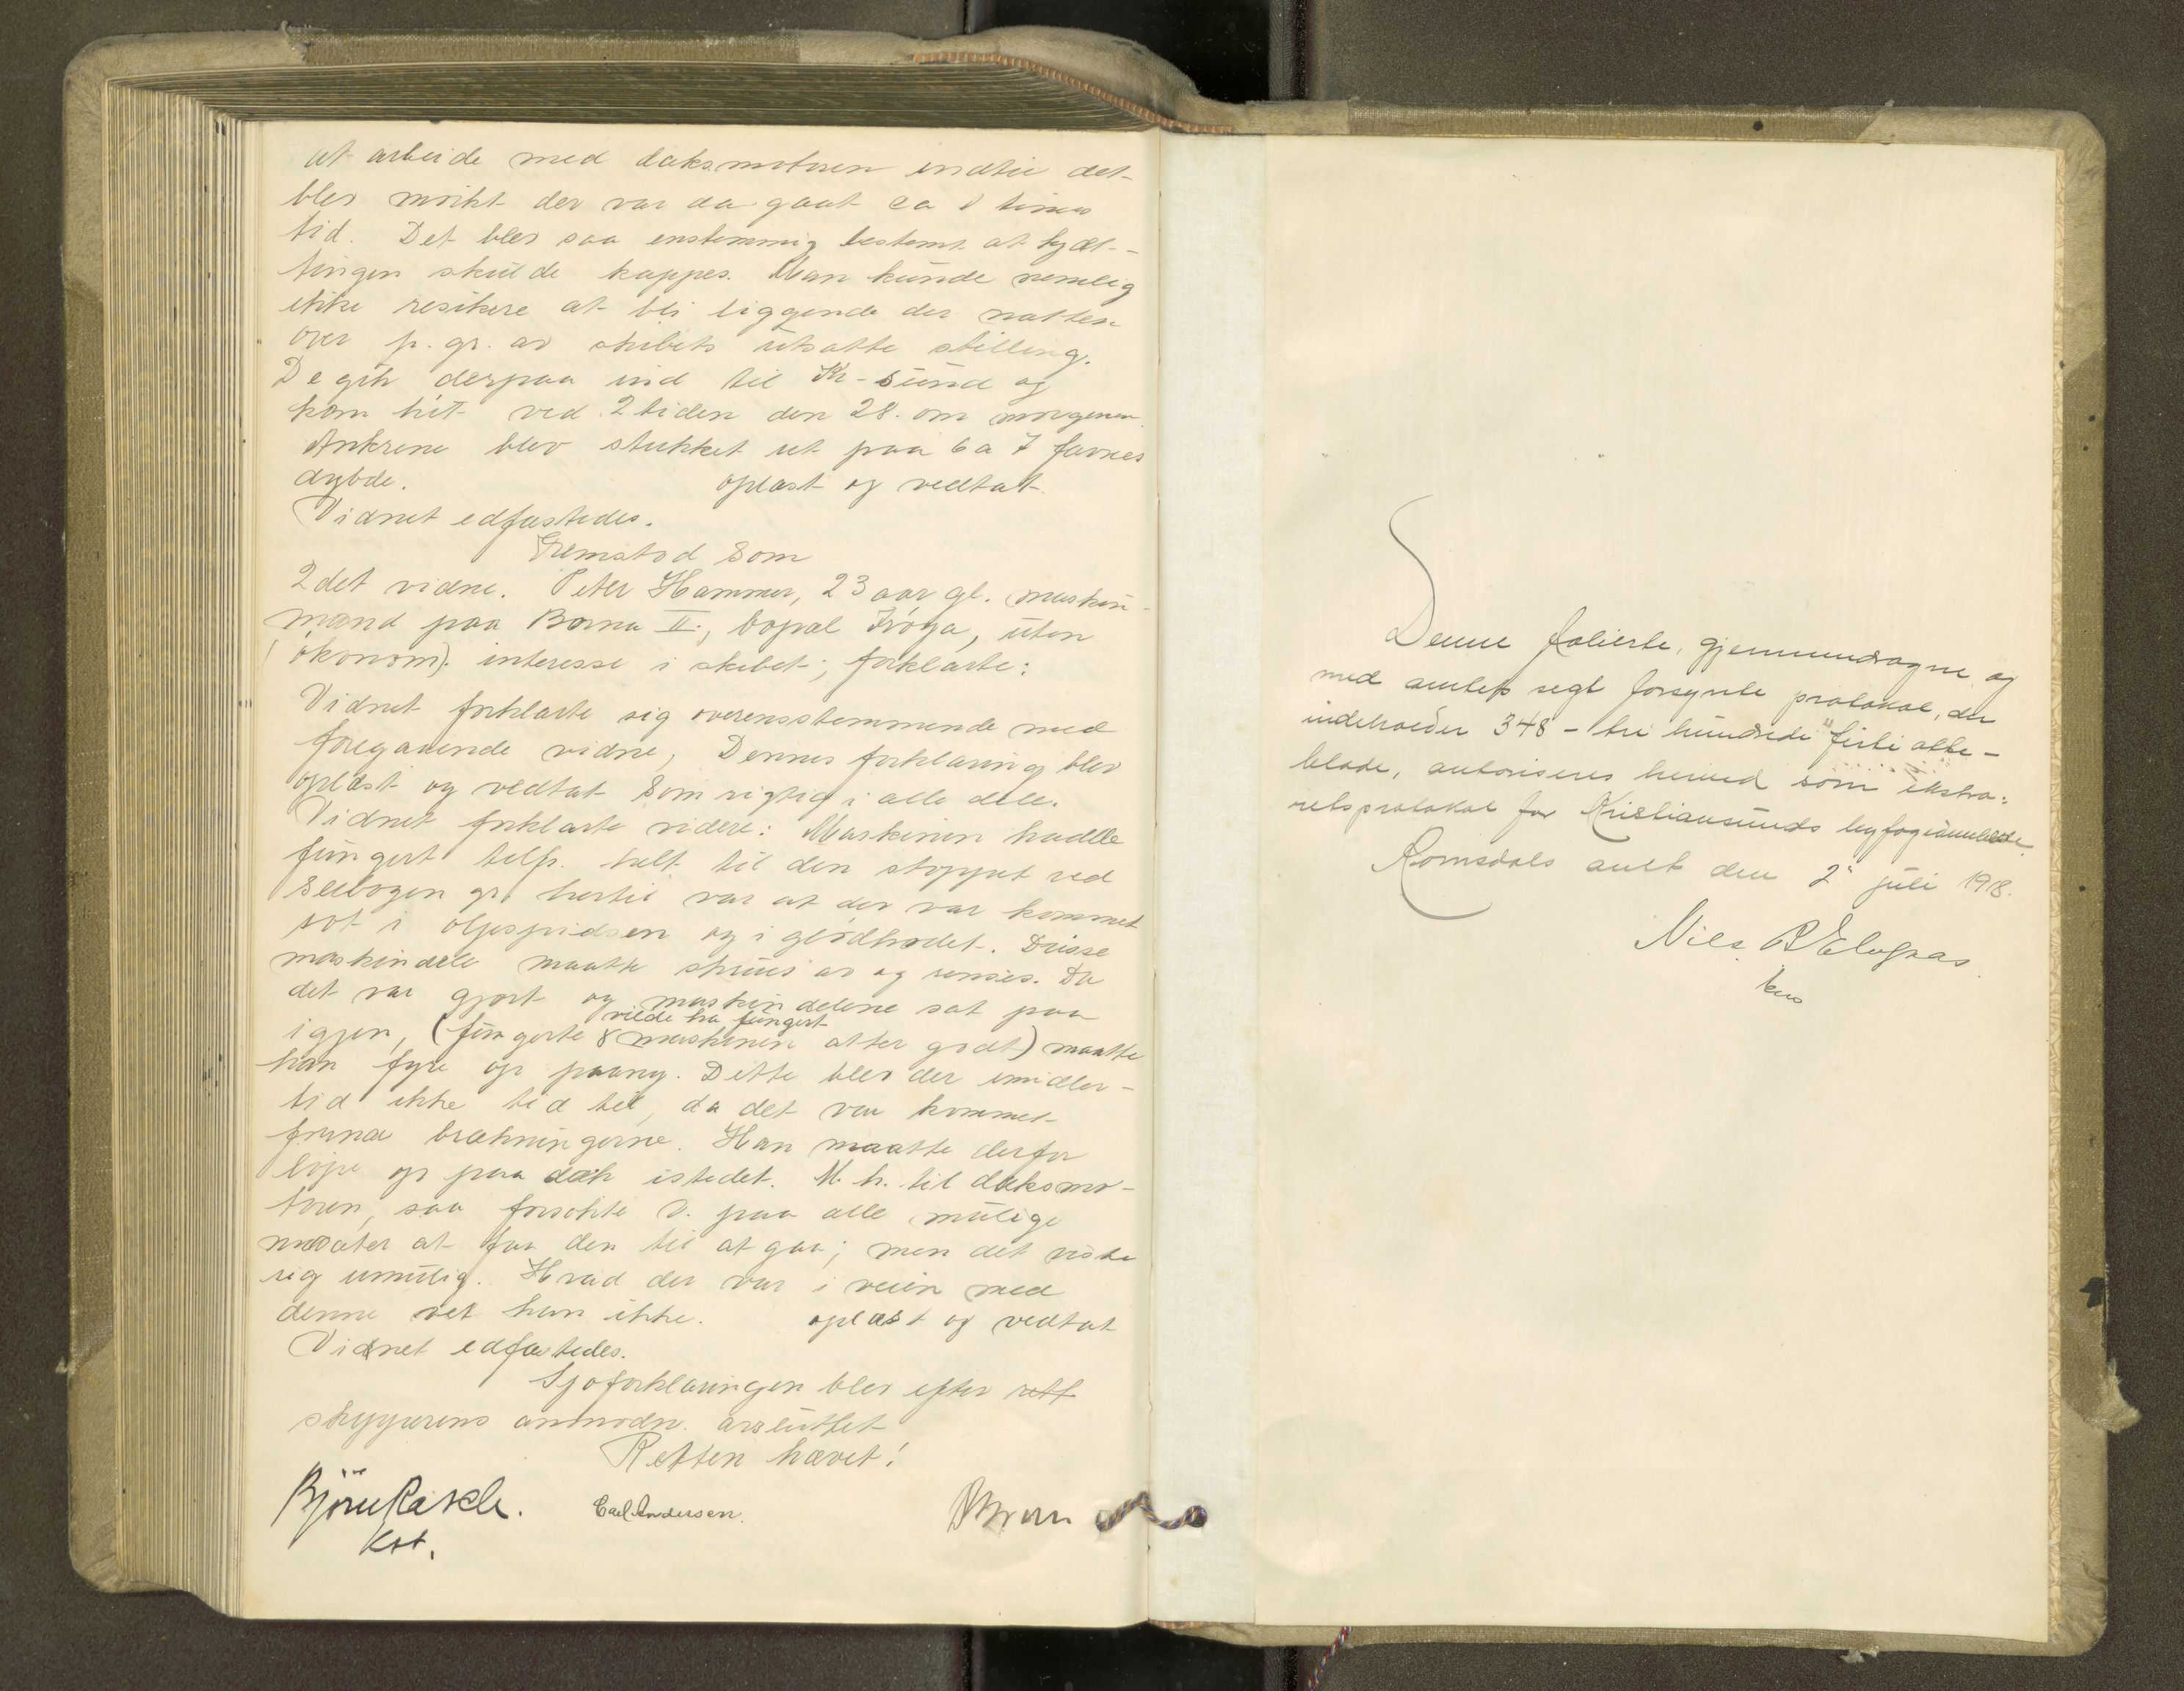 at arbeide med dæksmotoren indtil det
blev mørkt der var da gaat ca 1 times
tid. Det blev saa enstemmig bestemt at kjæt-
tingen skulde kappes. Man kunde nemlig
ikke resikere at bli liggende der natten
over p. gr. av skibets utsatte stilling.
De gik derpaa ind til Kr-sund og
kom hit ved 2 tiden den 28. om morgenen.
Ankrene blev stukket ut paa 6 a 7 favnes
dybde. oplæst og vedtat.
Vidnet edfæstedes.
Fremstod som
2det vidne. Peter Hammer, 23 aar gl. maskin-
mand paa Borna II., bopæl Frøya, uten
økonom). interesse i skibet; forklarte:
Vidnet forklarte sig overensstemmende med
foregaaende vidne, Dennes forklaring blev
oplæst og vedtat som rigtig i alle dele.
Vidnet forklarte videre: Maskinen hadde
fungert tilfr. helt til den stoppet ved
gr. hertil var at der var kommet
sot i oljespidsen og i glødhodet. Disse
maskindele maatte skrues av og renses. Da
det var gjort og maskindelene sat paa
vilde ha fungert
igjen, (fungerte maskinen atter godt) maatte
han fyre op paany. Dette blev der imidler-
tid ikke tid til, da det var kommet
brækningerne. Han maatte derfor
løpe op paa dæk istedet. M. h. til dæksmo-
toren, saa forsøkte V. paa alle mulige
maater at faa den til at gaa; men det viste
sig umulig. Hvad der var i veien med
denne vet han ikke. oplæst og vedtat
Vidnet edfæstedes.
Sjøforklaringen blev efter rett
skipperens anmodn. avsluttet
Retten hævet!
Bjørn Kst.
Carl Andersen.
Denne folierte, gjennemdragne og
med amtets segl forsynte protokol, der
indeholder 348 – tre hundrede firti otte –
blade, autoriseres herved som ekstra-
retsprotokol for Kristiansunds byfogdembede.
Romsdals amt den 2" juli 1918.
Nils
kns